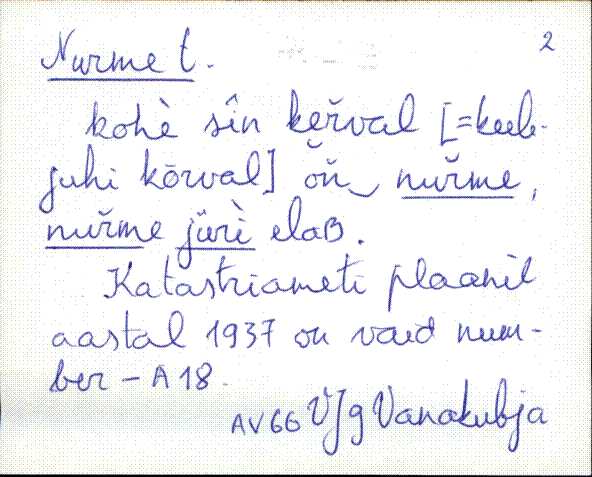 2
Nurme t.
kohè sîn keřval [=keele-
juhi kõrval] õ̆ň nuřme,
nuřme jürì elaʙ.
Katastriameti plaanil
aastal 1937 on vaid num-
ber – A18.
AV66 VJg Vanakubja